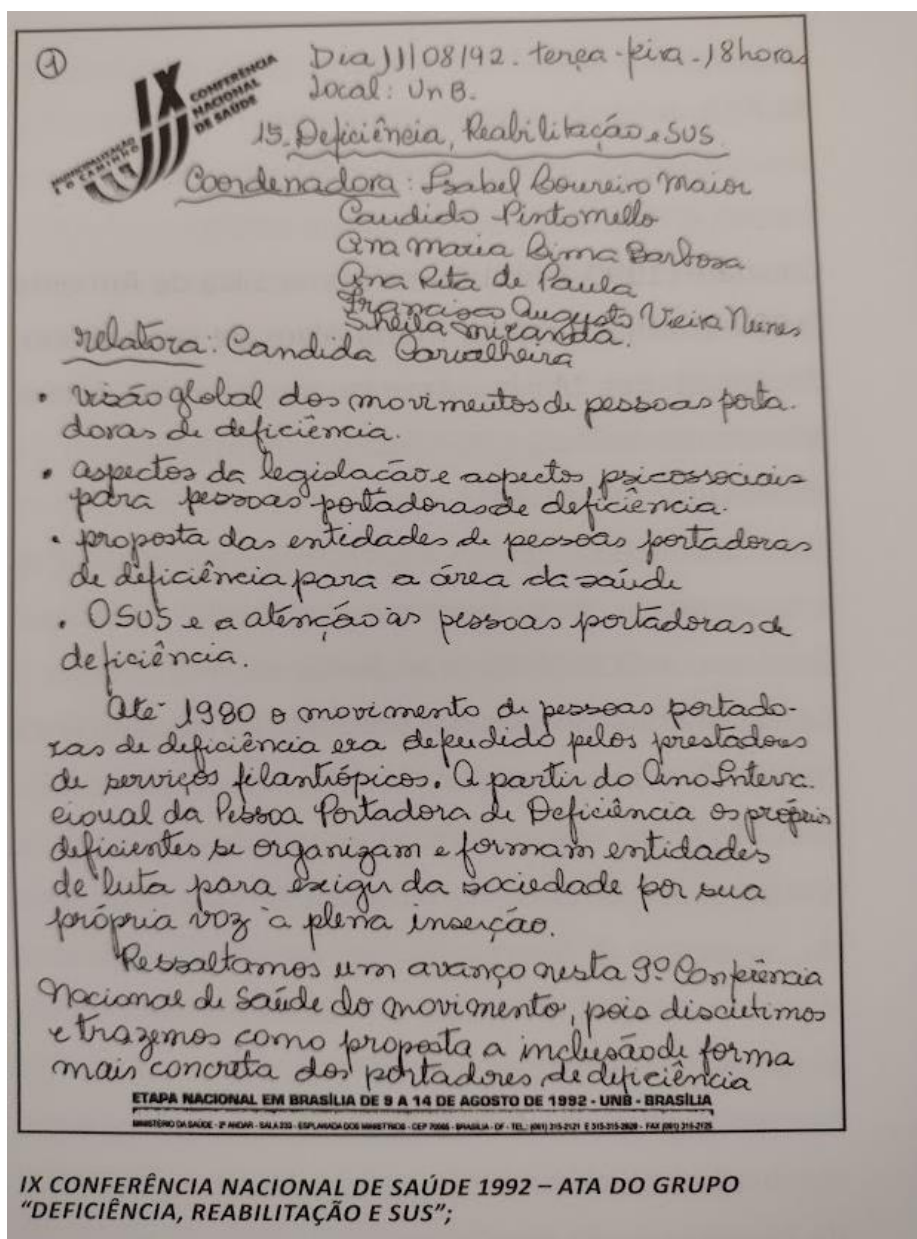 1
IX CONFERÊNCIA
NACIONAL
DE SAÚDE
MUNICIPALIZAÇÃO
É O CAMINHO
Dia 11/08/92. terça-feira - 18horas
Local: UnB.
15. Deficiência, Reabilitação e SUS
Coordenadora: Isabel Loureiro Maior
Candido Pintomello
Ana Maria Lima Barbosa
Ana Rita de Paula
Francisco Augusto Vieira Nunes
Sheila Miranda.
relatora: Candida Carvalheira
• visão global dos movimentos de pessoas porta-
doras de deficiência.
• aspectos da legislação e aspectos psicossociais
para pessoas portadoras de deficiência.
• proposta das entidades de pessoas portadoras
de deficiência para a área da saúde
• O SUS e a atenção às pessoas portadoras de
deficiência.
Até 1980 o movimento de pessoas portado-
ras de deficiência era defendido pelos prestadores
de serviços filantrópicos. A partir do Ano Interna-
cional da Pessoa Portadora de Deficiência os próprios
deficientes se organizam e formam entidades
de luta para exigir da sociedade por sua
própria voz a plena inserção.
Ressaltamos um avanço nesta 9º Conferência
Nacional de Saúde do movimento, pois discutimos
e trazemos como proposta a inclusão de forma
mais concreta dos portadores de deficiência
ETAPA NACIONAL EM BRASÍLIA DE 9 A 14 DE AGOSTO DE 1992 - UNB - BRASÍLIA
MINISTÉRIO DA SAÚDE - 2º ANDAR - SALA 233 - ESPLANADA DOS MINISTÉRIOS - CEP 70065 - BRASÍLIA - DF - TEL.: (061) 315-2121 E 315-315-2828 - FAX (061) 315-2125
IX CONFERÊNCIA NACIONAL DE SAÚDE 1992 – ATA DO GRUPO
"DEFICIÊNCIA, REABILITAÇÃO E SUS";